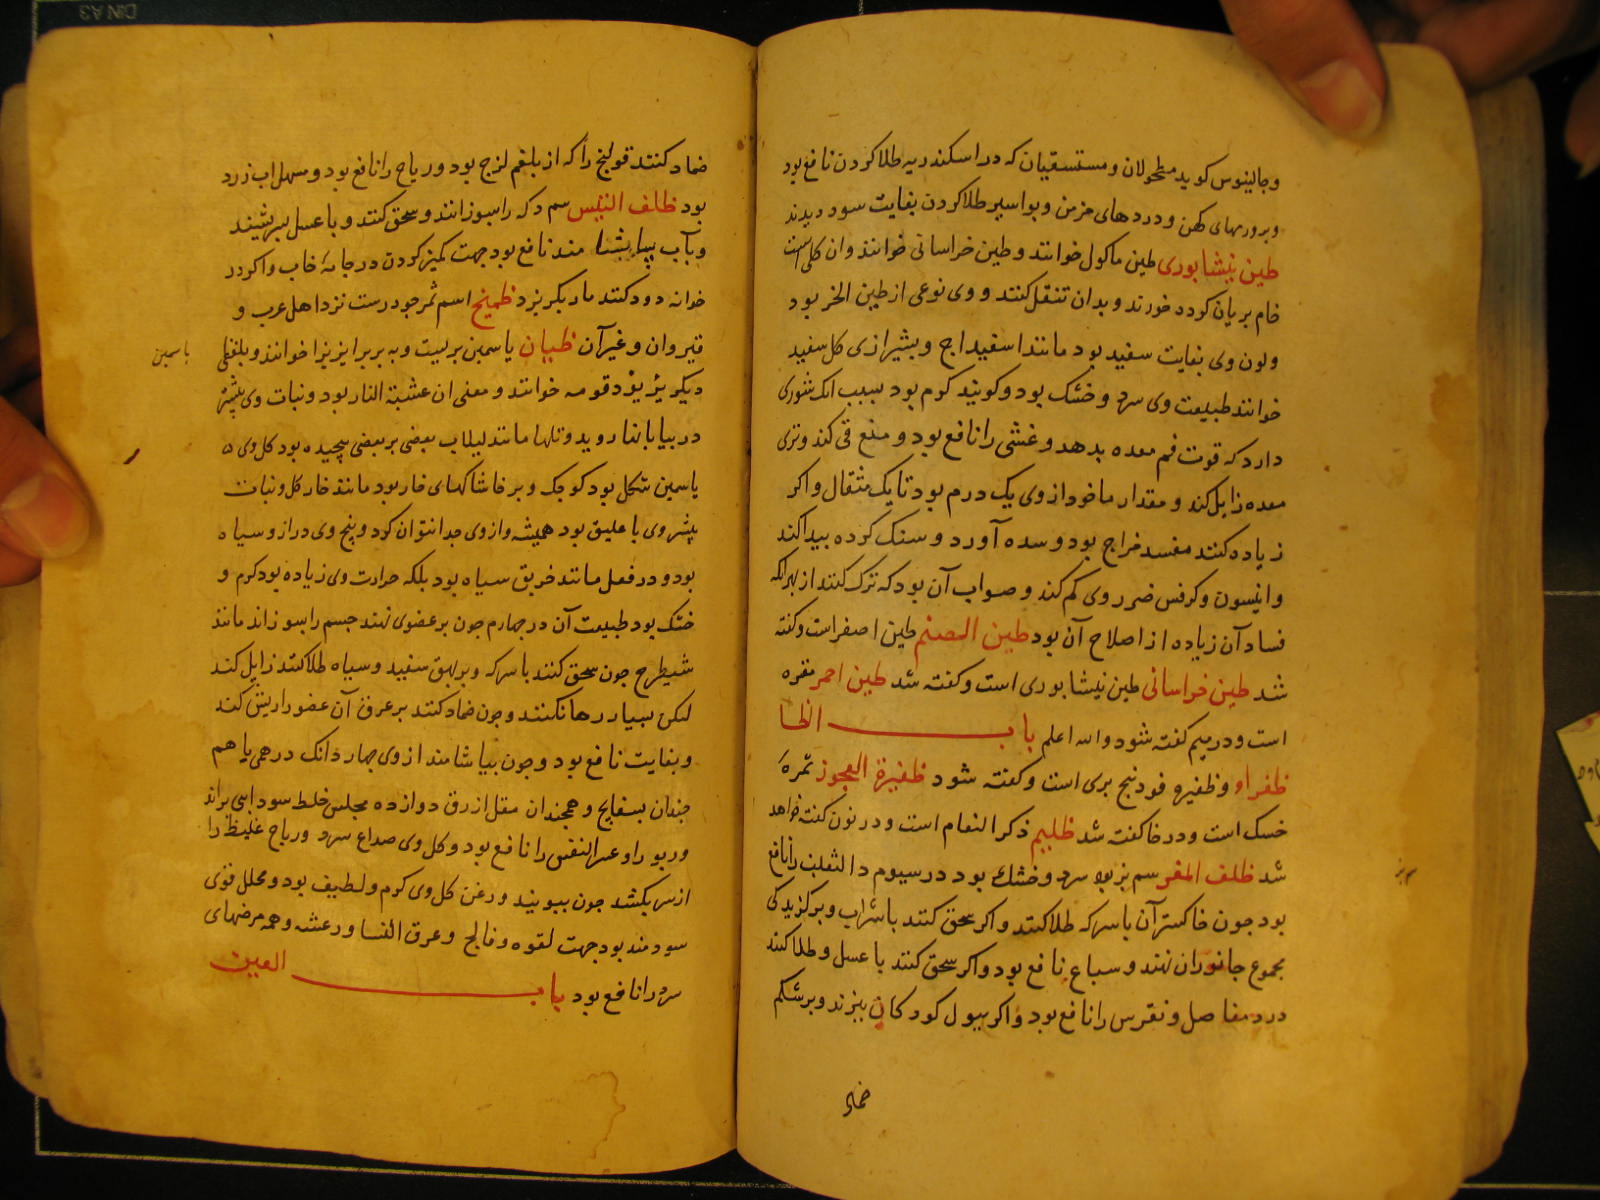 وجالینوس کوید مطحولان و مستسقیان که در اسکندریه طلا کردن نافع بود
وبرورمهای کهن و دردهای مزمن و بواسیر طلا کردن بغایت سود دیدند
طین نیشابوری طین ماکول خوانند و طین خراسانی خوانند وان کلی است
خام بریان کرده خورند و بدان تنقل کنند و وی نوعی از طین الخر بود
ولون وی بغایت سفید بود مانند اسفیداج و بشیرازی کل سفید
خوانند طبیعت وی سرد و خشک بود و کویند کرم بود بسبب انک شوری
دارد که قوت فم معده بدهد و غشی را نافع بود و منع قی کند و تری
معده زایل کند و مقدار ماخوذ از وی یک درم بود تا یک مثقال و اکر
زیاده کنند مفسد مزاج بود و سده آورد و سنک کرده پیدا کند
و انیسون و کرفس ضرر وی کم کند و صواب آن بود که ترک کنند از بهر انکه
فساد آن زیاده از اصلاح آن بود طین الصنم طین اصفر است و کفته
شد طین خراسانی طین نیشابوری است و کفته شد طین احمر مغره
است و در میم کفته شود والله اعلم باب الظا
ظفراو وظفیرو فودنج بری است و کفته شود ظفیرة العجوز ثمره
خسک است و در خا کفته شد ظلیم ذکر النعام است و در نون کفته خواهد
شد ظلف المعز سم بز بود سرد و خشک بود در سیوم دا الثعلب را نافع
بود جون خاکستر آن با سرکه طلا کنند و اکر سحق کنند با شراب و بر کزیدکی
مجموع جانوران نهند و سباع نافع بود و اکر سحق کنند با عسل و طلا کنند
درد مفاصل و نقرس را نافع بود و اکر ببول کودکان بپزند و بر شکم
ضماد
سم بز
ضماد کنند قولنج را که از بلغم لزج بود و ریاح را نافع بود و مسهل اب زرد
بود ظلف التیس سم دکه را بسوزانند و سحق کنند و با عسل بسرشیند
و بآب بیاشامند نافع بود جهت کمیز کردن در جامه خاب و اکر در
خوانه دود کنند مار بکریزد ظمیخ اسم ثمر جودرست نزد اهل عرب و
قیروان و غیر آن ظیان یاسمین بریست و به بربر ایزیزا خوانند و بلغتی
دیکر یژیژد قومه خوانند و معنی ان عشبة النار بود و نبات وی بیشتر
در بیابانها روید و تلها مانند لبلاب بعضی بر بعضی پیچیده بود کل وی
یاسمین شکل بود کوجک و بر خاشاکهای خار بود مانند خار کل و نبات
بیشر وی با علیق بود همیشه و از وی جدا نتوان کرد و بنج وی دراز و سیاه
بود و در فعل مانند خربق سیاه بود بلکه حرارت وی زیاده بود کرم و
خشک بود طبیعت آن در جهارم جون بر عضوی نهند جسم را بسوزاند مانند
شیطرج جون سحق کنند با سرکه و بر بهق سفید و سیاه طلا کنند زایل کند
لیکن بسیار رها نکنند و جون ضماد کنند بر عرق آن عضو را ریش کند
و بغایت نافع بود و جون بیاشامند از وی جهار دانک درهمی با هم
جندان بسفایج و همجندان مقل ازرق دوازده مجلس خلط سوداپی براند
وربو را و عسر النفس را نافع بود و کل وی صداع سرد و ریاح غلیظ را
از سر بکشد جون ببویند و رغن کل وی کرم و لطیف بود و محلل قوی
سودمند بود جهت لقوه و فالج و عرق النسا و رعشه و همه مرضهای
سرد را نافع بود باب العین
یاسمین
DIN A3